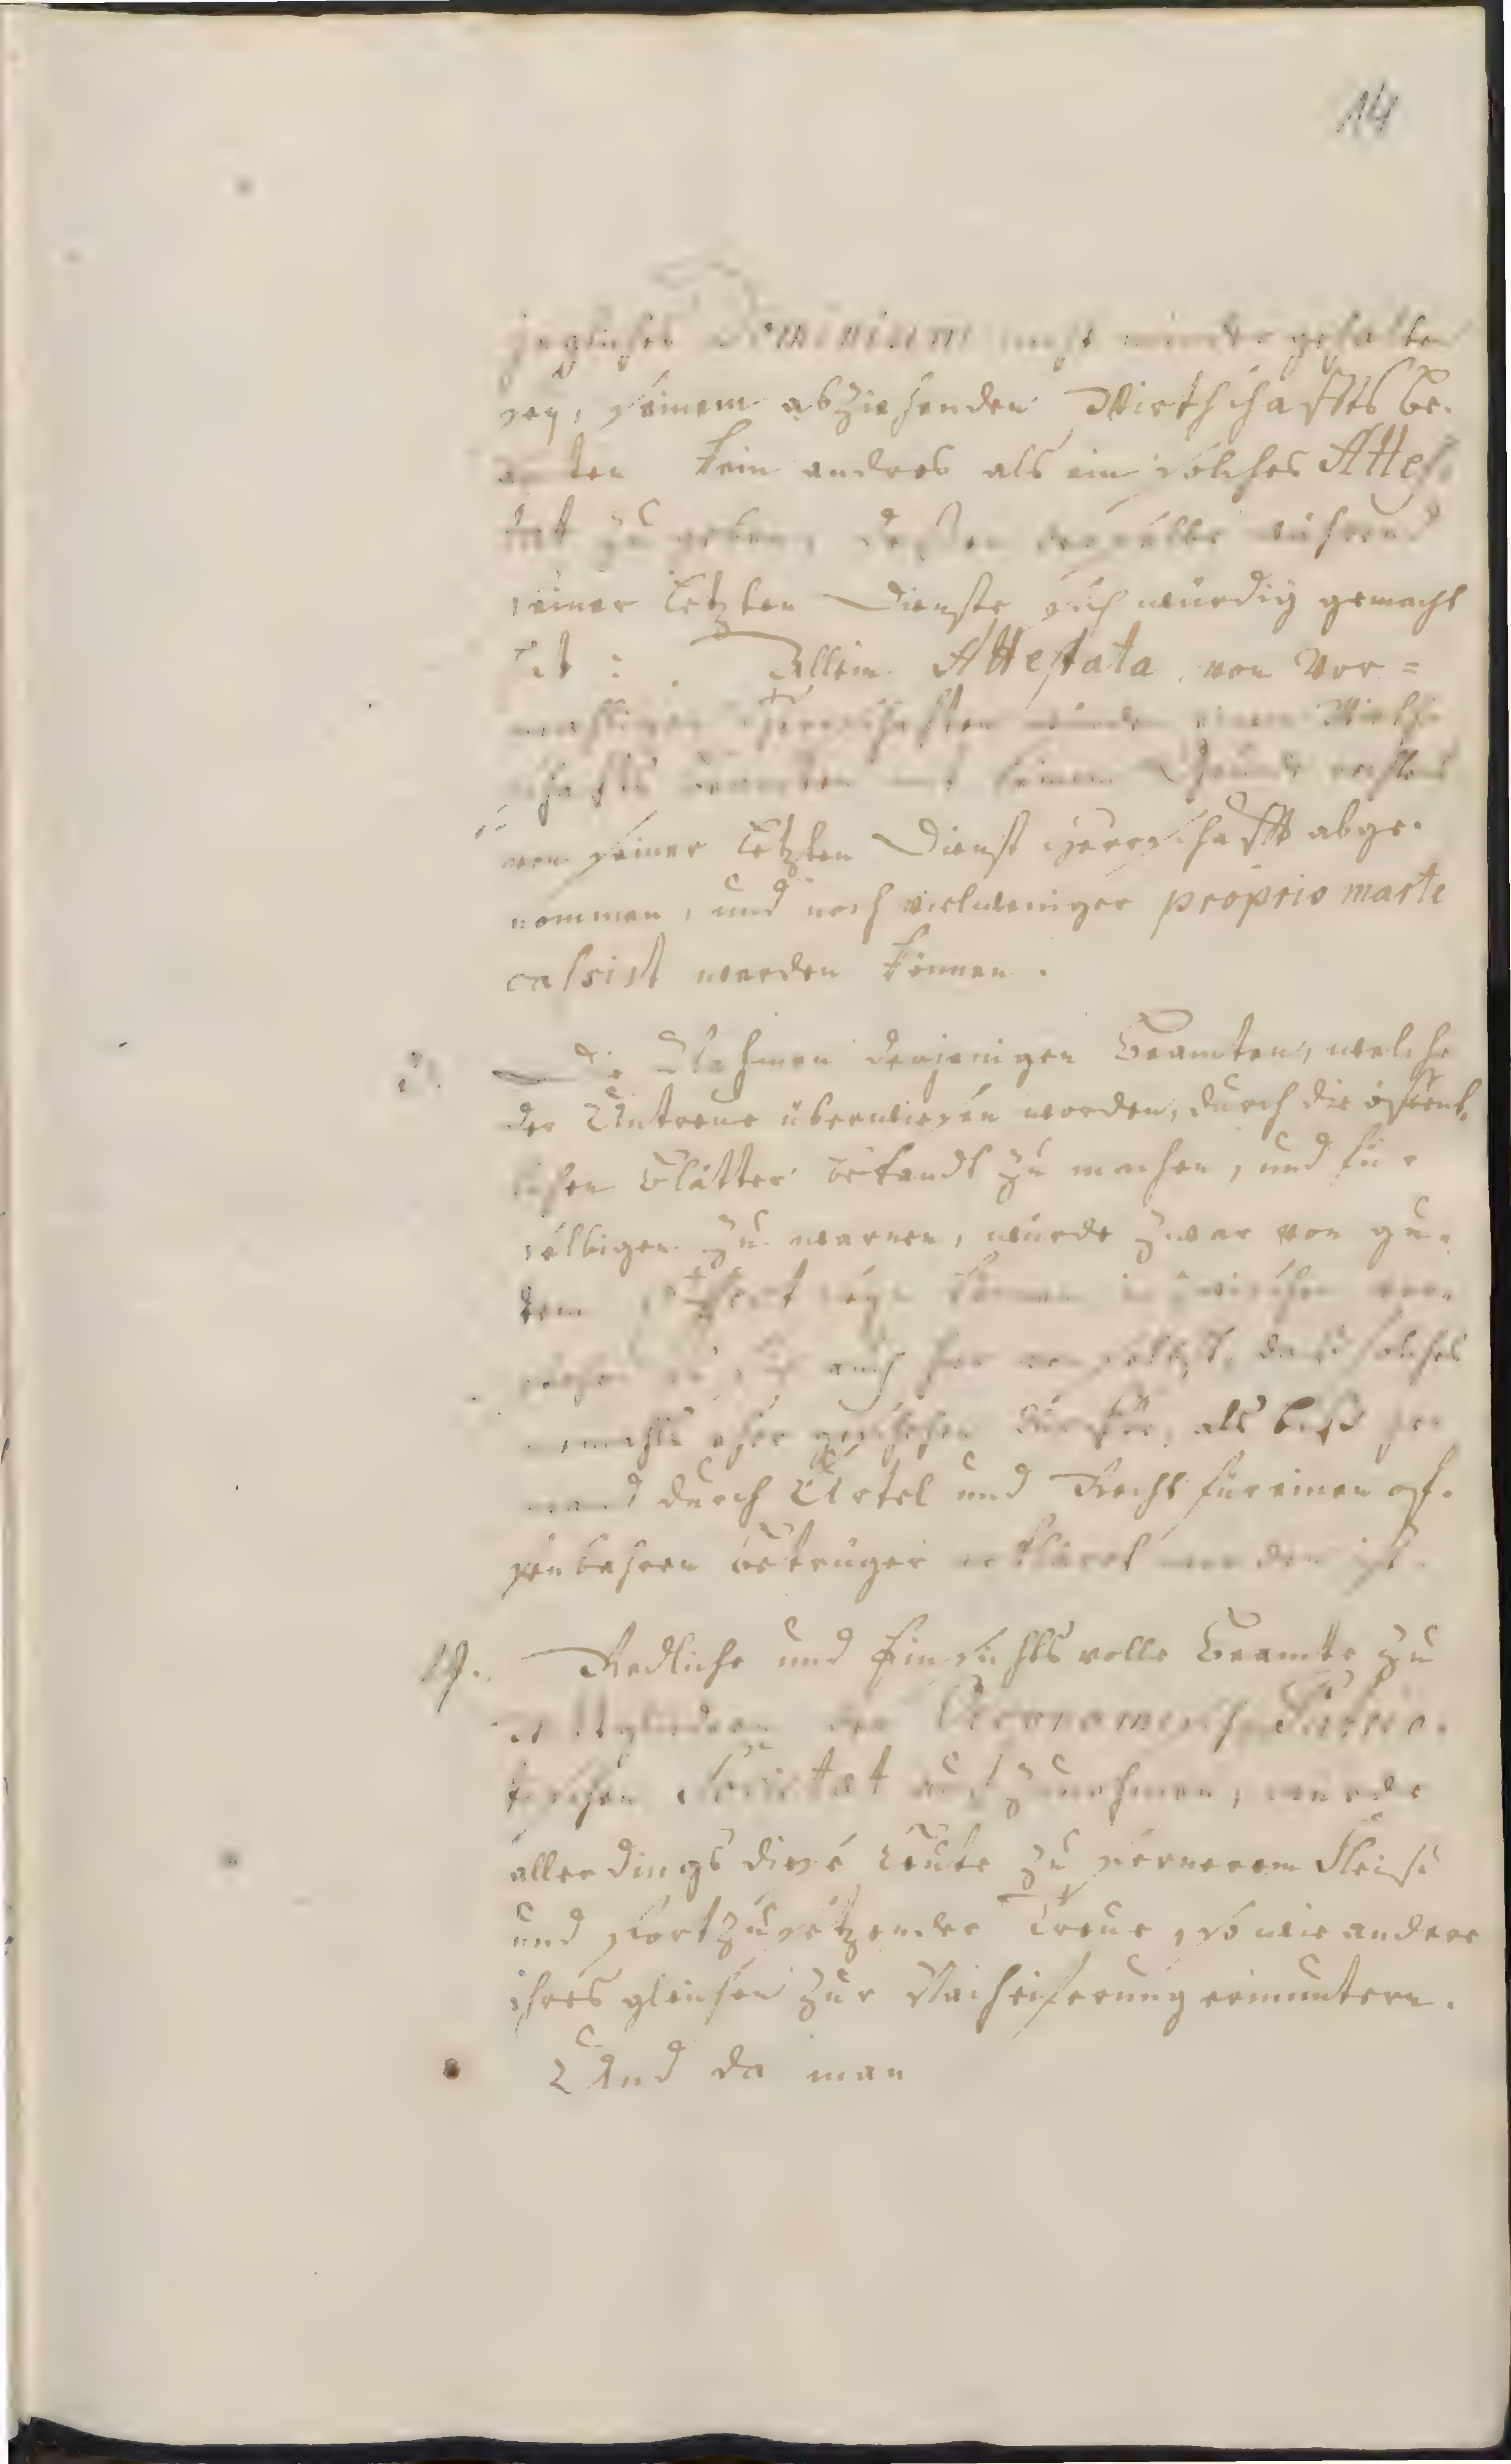 14
jegliches Dominium nicht minder gehalten
sey, seinem abziehenden Wirthschaffts be-
amten kein andres als ein solches Attes-
tat zu geben, deßen derselbe während
seiner letzten Dienste sich würdig gemacht
hat. Allein Attestata von Vor=
mahligen Herrschafften würden einem Wirth-
schaffts beamten mit keinem Grunde rechtens
von seiner letzten Dienst Herrschafft abge-
nommen, und noch vielweniger proprio marte
cassirt werden können.
Die Nahmen derjenigen Beamten, welche
der Untreue überwiesen worden, durch die öffent-
lichen Blätter bekandt zu machen, und für
selbigen zu warnen, würde zwar von gu-
tem Effect seyn können inzwischen ver-
stehet es sich auch hier von selbst, daß solches
niemahls eher geschehen dürffte, als biß je-
mand durch Urtel und Recht für einen of-
fenbahren Betrüger erkläret worden ist.
Redliche und Einsichtsvolle Beamte zu
Mitgliedern der Oeconomisch Patrio-
tischen Societaet aufzunehmen, würde
allerdings diese Leute zu fernerem Fleiße
und fortzusetzender Treue, so wie andere
ihres gleichen zur Nacheiferung ermuntern.
Und da man